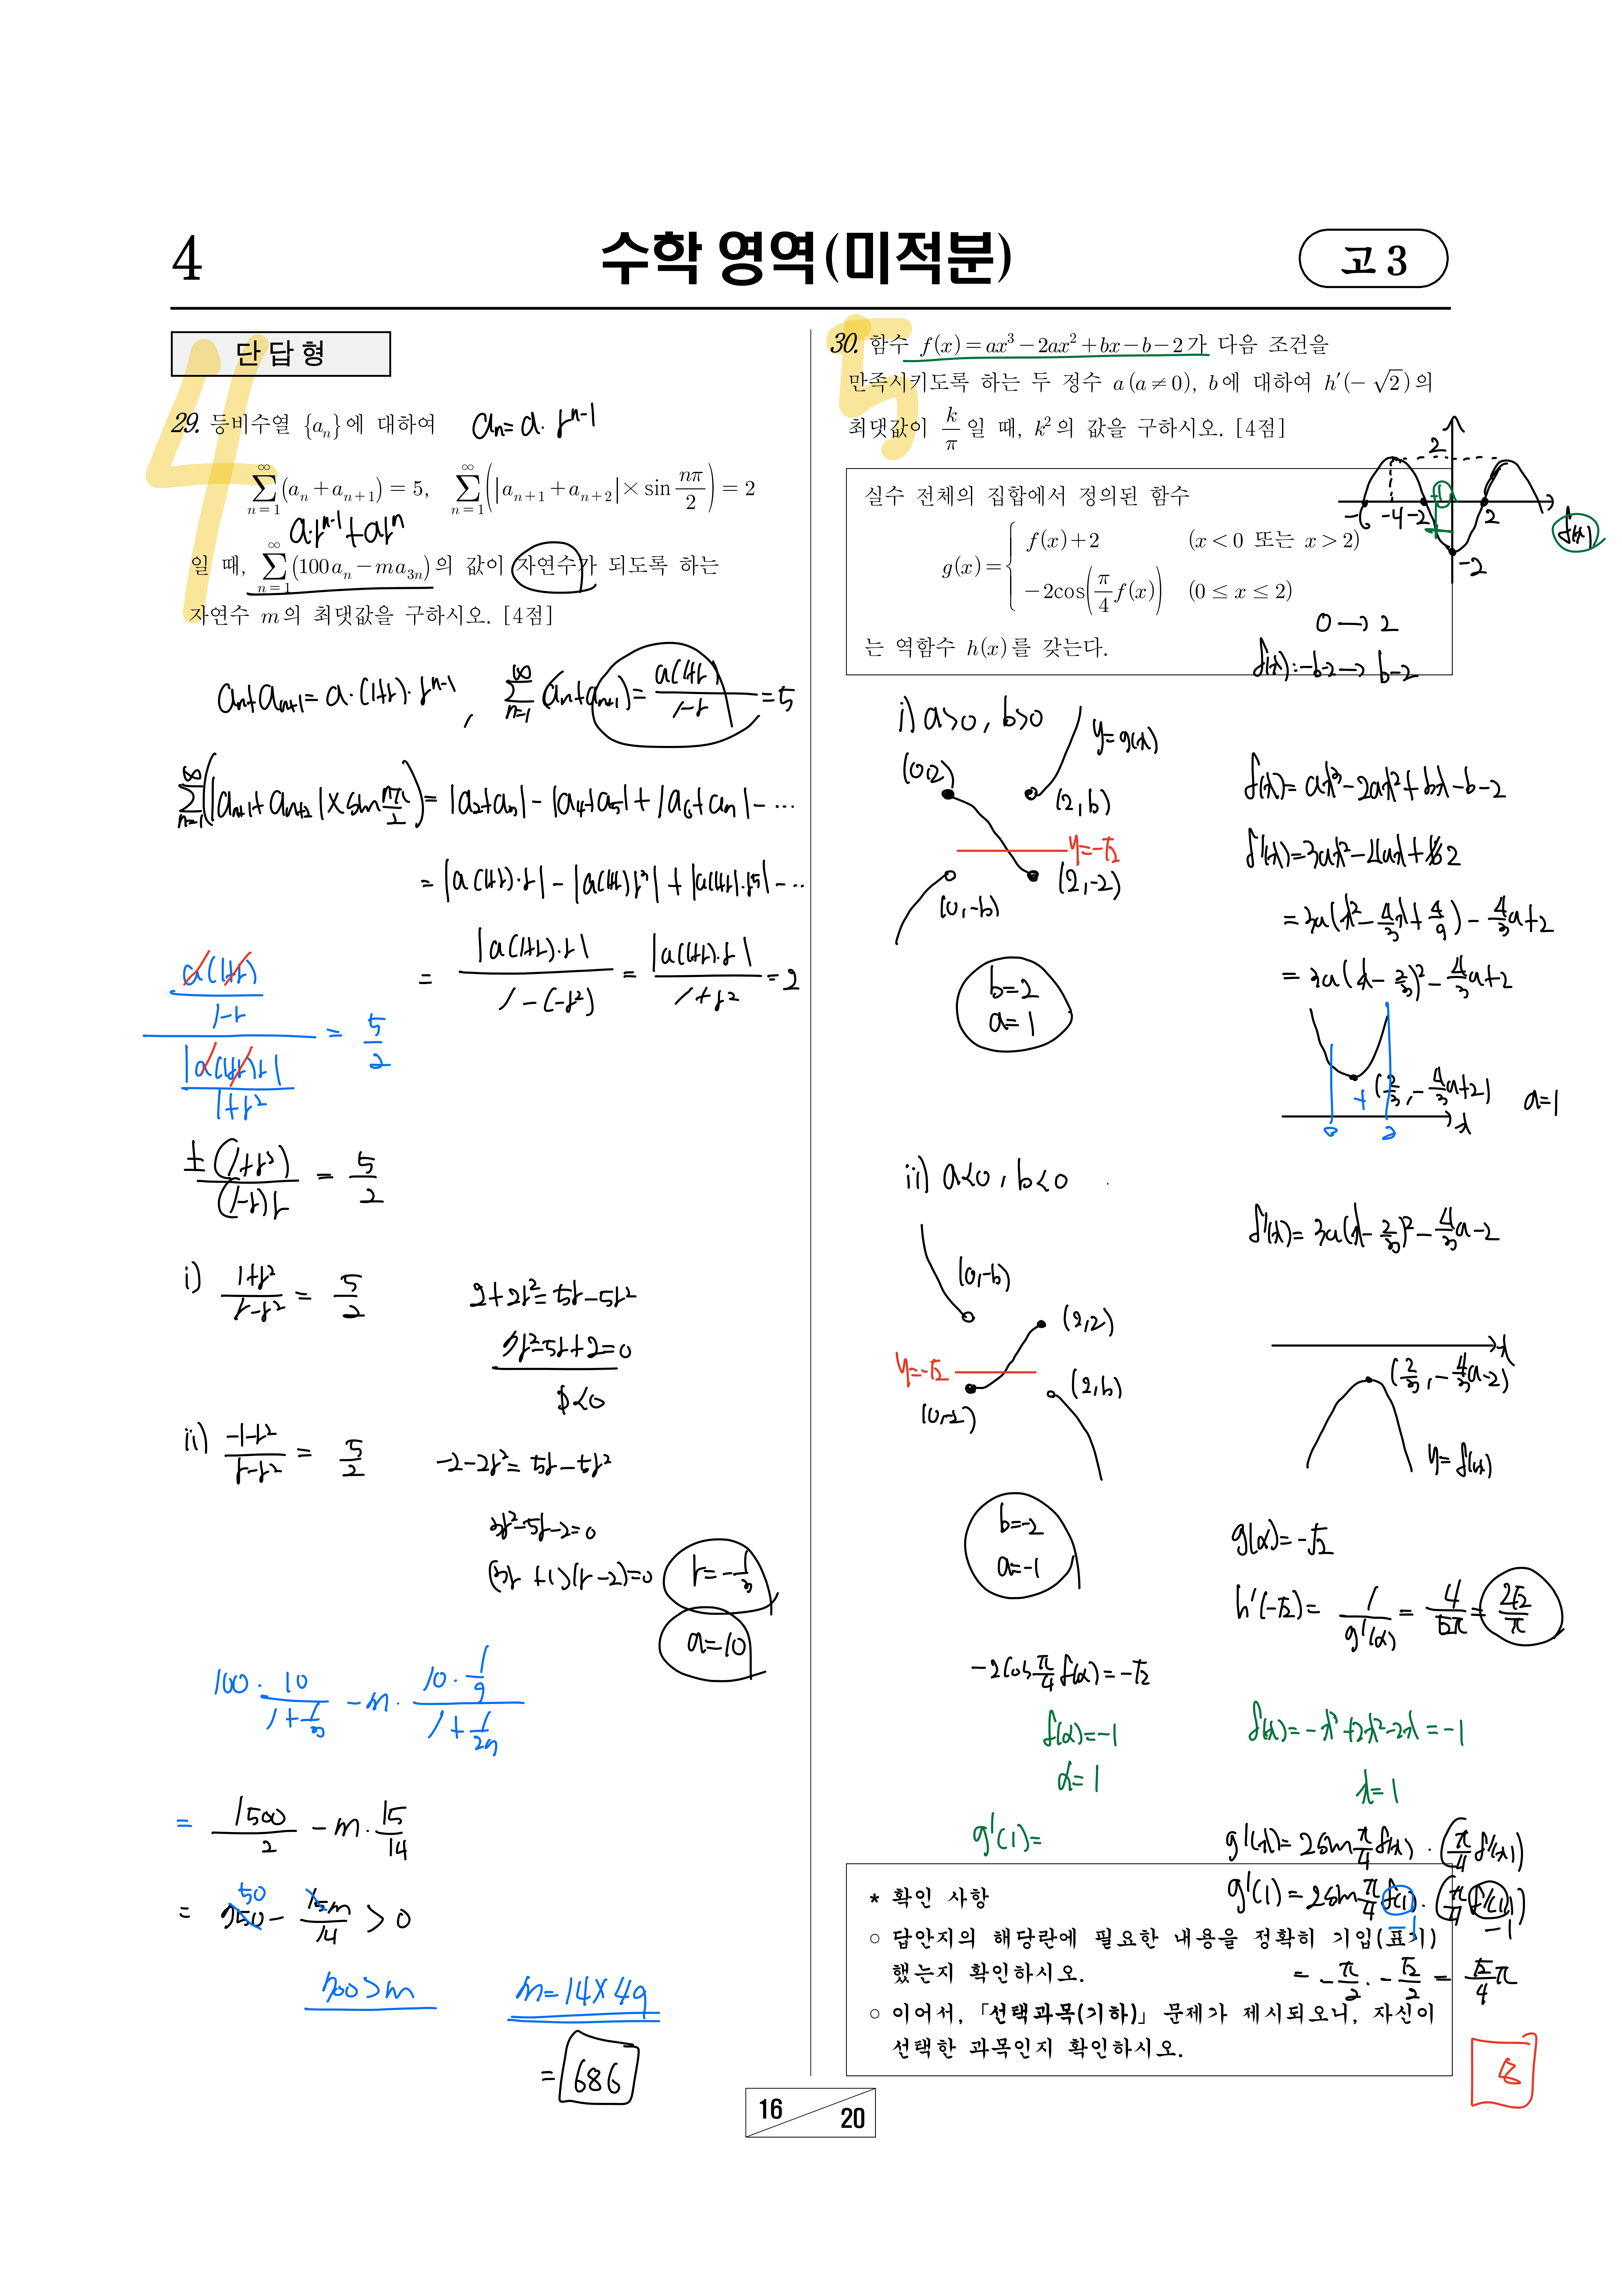 4
수학 영역(미적분)
고 3
단 답 형
4
29. 등비수열 {aₙ}에 대하여
aₙ = a · rⁿ⁻¹
∑_{n=1}^{∞}(aₙ+aₙ₊₁) = 5, ∑_{n=1}^{∞}(|aₙ₊₁+aₙ₊₂| × sin nπ/2) = 2
a·rⁿ⁻¹+arⁿ
일 때, ∑_{n=1}^{∞}(100aₙ − ma₃ₙ)의 값이 자연수가 되도록 하는
자연수 m의 최댓값을 구하시오. [4점]
aₙ+aₙ₊₁ = a·(1+r)·rⁿ⁻¹, ∑_{n=1}^{∞}(aₙ+aₙ₊₁) = a(1+r)/(1−r) = 5
∑_{n=1}^{∞}(|aₙ₊₁+aₙ₊₂| × sin nπ/2) = |a₂+a₃| − |a₄+a₅| + |a₆+a₇| − ⋯
= |a(1+r)·r| − |a(1+r)r³| + |a(1+r)·r⁵| − ⋯
= |a(1+r)·r| / (1−(−r²)) = |a(1+r)·r| / (1+r²) = 2
(a(1+r)/(1−r)) / (|a(1+r)r|/(1+r²)) = 5/2
±(1+r²)/((1−r)r) = 5/2
i) (1+r²)/(r−r²) = 5/2
2+2r² = 5r−5r²
7r²−5r+2=0
D<0
ii) (−1−r²)/(r−r²) = 5/2
−2−2r² = 5r−5r²
3r²−5r−2=0
(3r+1)(r−2)=0
r=−1/3
a=10
100 · 10/(1+1/3) − m · (10 · 1/9)/(1+1/27)
= 1500/2 − m · 15/14
= 750 − 15m/14 > 0
50
700>m
m=14×49
= 686
5
30. 함수 f(x)=ax³−2ax²+bx−b−2가 다음 조건을
만족시키도록 하는 두 정수 a(a≠0), b에 대하여 h′(−√2)의
최댓값이 k/π 일 때, k²의 값을 구하시오. [4점]
실수 전체의 집합에서 정의된 함수
g(x) = { f(x)+2 (x<0 또는 x>2)
−2cos(π/4 f(x)) (0≤x≤2)
는 역함수 h(x)를 갖는다.
2
−6 −4 −2 2
−2
f(x)
0 → 2
f(x): −b−2 → b−2
i) a>0, b>0
y=g(x)
(0,2)
(2,b)
y=−√2
(2,−2)
(0,−b)
b=2
a=1
f(x)=ax³−2ax²+bx−b−2
f′(x)=3ax²−4ax+2
=3a(x²−4/3x+4/9)−4/3a+2
=3a(x−2/3)²−4/3a+2
(2/3, −4/3a+2)
a=1
+
0 2
x
ii) a<0, b<0
f′(x)=3a(x−2/3)²−4/3a−2
(0,−b)
(2,2)
y=−√2
(2,b)
(0,−2)
x
(2/3, −4/3a−2)
y=f′(x)
b=−2
a=−1
g(α)=−√2
h′(−√2) = 1/g′(α) = 4/(√2π) = 2√2/π
−2cos π/4 f(α)=−√2
f(α)=−1
α=1
f(x)=−x³+2x²−2x=−1
x=1
g′(1)=
g′(x)=2sin π/4 f(x) · (π/4 f′(x))
g′(1)=2sin π/4 f(1) · (π/4 f′(1))
−1 −1
= −π/2 · −√2/2 = √2/4 π
8
* 확인 사항
○ 답안지의 해당란에 필요한 내용을 정확히 기입(표기)
했는지 확인하시오.
○ 이어서, 「선택과목(기하)」 문제가 제시되오니, 자신이
선택한 과목인지 확인하시오.
16
20